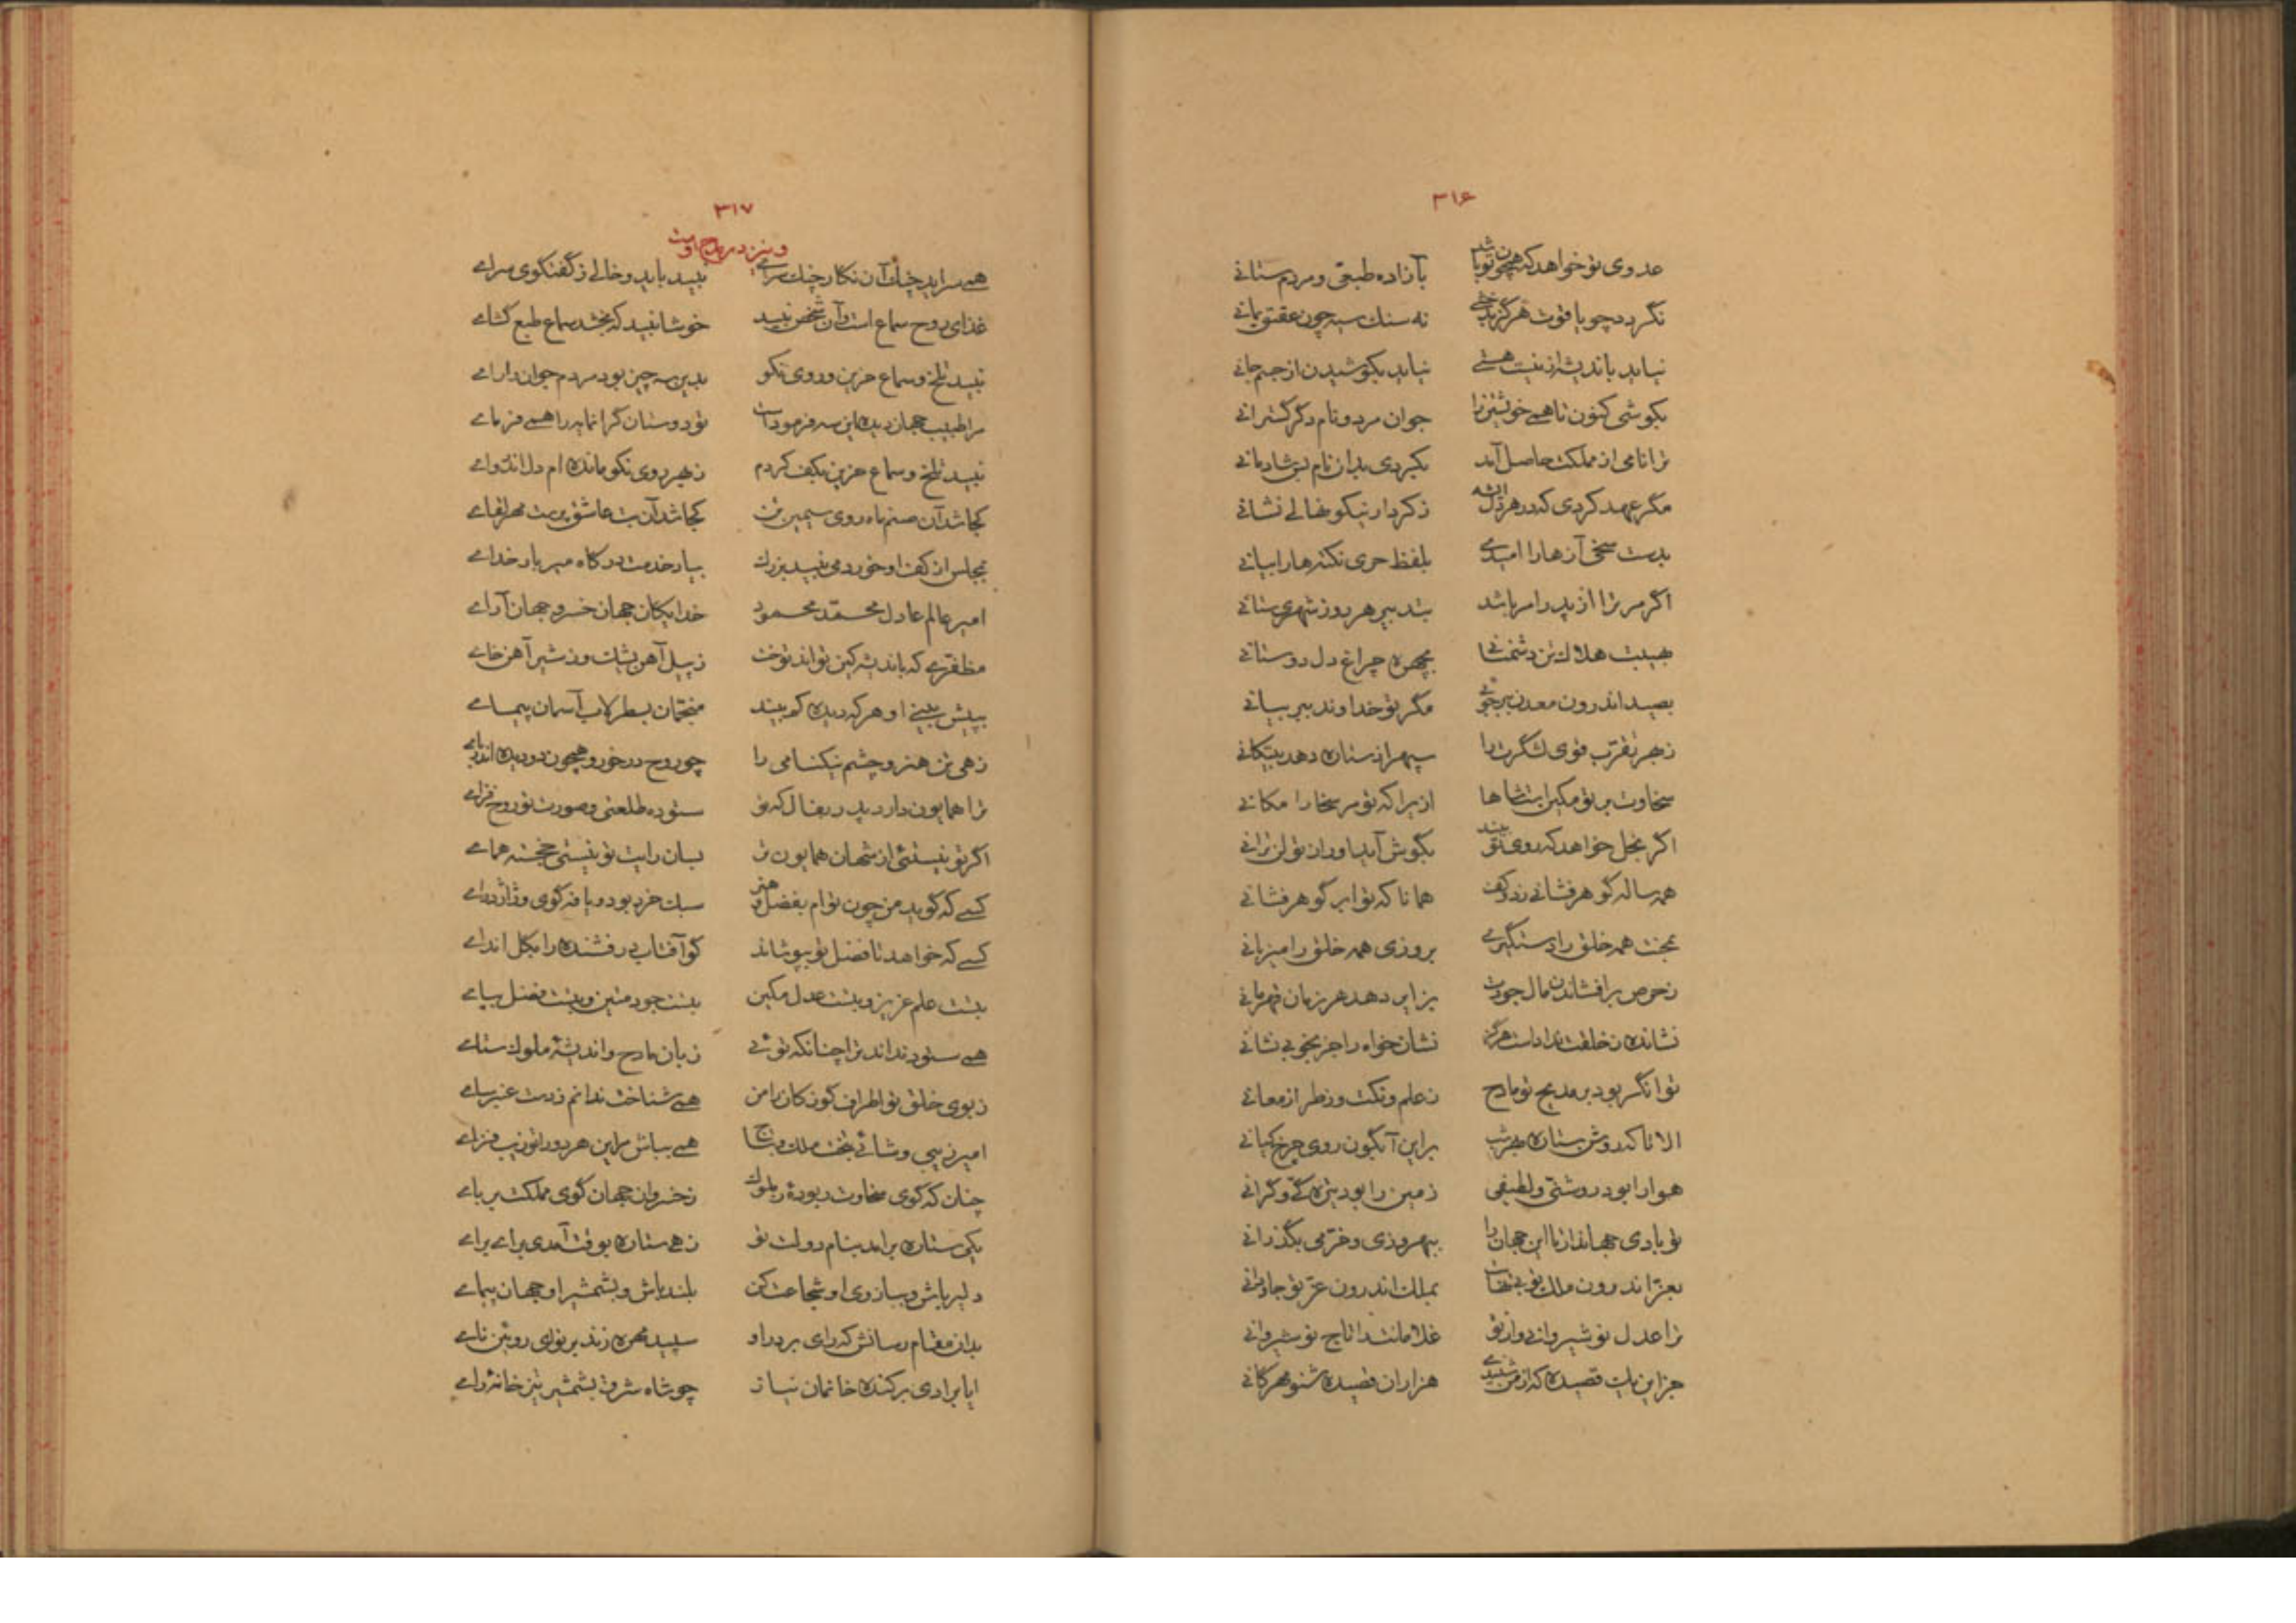 ۳۱۶
عدوی تو خواهد که همچون تو باشد بآزاده طبعی و مردم ستانے
نگردد چو یاقوت هرگز بدخشے نه سنك سیه چون عقیق یمانے
نیاید باندیشه از نیست هستے نیاید بکوشیدن از جسم جانے
بکوشی کنون تا همے خویشتن را جوان مرد و نام دگر گسترانے
ترا نامی از مملکت حاصل آید بکیردی بدان نام بس شادمانے
مگر عهد کردی که در هر دل ای شه ز کردار نیکو نهالے نشانے
بدست سخی آزها را امیدے بلفظ حری نکته‌ها را بیانے
اگر مر ترا از پدر امر باشد بتدبیر هر روز شهری ستانے
بهیبت هلاك تن دشمنانے بچهره چراغ دل دوستانے
بصید اندرون معدن ببر جوئے مگر تو خداوند ببر بیانے
ز بهر تقرب قوی لشگرت را سپهر از ستاره دهد بیستکانے
سخاوت بر تو مکین است شاها ازیرا که تو مر سخا را مکانے
اگر بخل خواهد که روی تو بیند بگوش آید او را ز تو لن ترانے
همه ساله گوهر فشانے ز دو کف همانا که تو ابر گوهر فشانے
ببخت همه خلق را دستگیرے بروزی همه خلق را میزبانے
ز حرص برافشاندن مال جودت بزایر دهد هر زمان قهرمانے
نشانده ز خلقت نداداست هرگز نشان خواه را جز بخوبی نشانے
توانگر بود بر مدیح تو مادح ز علم و نکت وز طراز معانے
الا تا که روشن ستاره است هر شب براین آبگون روی چرخ کیانے
هوا را بود روشنی و لطیفی زمین را بود تیره گے و گرانے
تو بادی جهاندار تا این جهان را ببهروزی و خرمی بگذرانے
بعز اندرون ملك تو بے نهایت بملك اندرون عز تو جاودانے
ترا عدل نوشیروانے و از تو غلامانت را تاج نوشیروانے
جز این یك قصیده که از من شنیدے هزاران قصیده شنو مهرکانے
۳۱۷
و نیز در مدح اوست
همے سراید چنك آن نکار چنك سراے نبید باید و خالے ز گفتکوی سراے
غذای روح سماع است و آن شخص نبید خوشا نبید که بخشد سماع طبع کشاے
نبید تلخ و سماع حزین و روی نکو بدین سه چیز بود مردم جوان را راے
مرا طبیب جهان دیده این سه فرموداست تو دوستان گرانمایه را همے فرماے
نبید تلخ و سماع حزین بکف کردم ز بهر روی نکو مانده ام دل اندرواے
کجا شد آن صنم ماه روی سیمین تن کجا شد آن بت عاشق پرست مهر افزاے
بمجلس از کف او خوردمی نبید بزرك بیاد خدمت درکاه میر بار خداے
امیر عالم عادل محمد محمود خدایکان جهان خسرو جهان آراے
مظفرے که باندیشه کین تواند توخت ز پیل آهن یشك و ز شیر آهن خاے
بپیش بینے او هر که دیده کم بیند منجمان بسطرلاب آسمان پیماے
زهی تن هنر و چشم نیکنامی را چو روح درخور و همچون دو دیده اندر باے
ترا همایون دارد پدر بفال که تو ستوده طلعتی و صورت تو روح فزاے
اگر تو نیستئی از شهان همایون تر بسان رایت تو نیستی خجسته هماے
کسے که کوید من چون توام بفضل و هنر سبك خرد بود و یافه کوی و ژاژ دراے
کسے که خواهد تا فضل تو بپوشاند کو آفتاب درفشنده را بکل انداے
بتست علم عزیز و بتست عدل مکین بتست جود متین و بتست فضل بپاے
همے ستود نداند ترا چنانکه توئے زبان مادح و اندیشهٔ ملوك ستاے
ز بوی خلق تو اطراف کوزکانان را من همے شناخت ندانم ز دست عنبر ساے
امیر زیبی و شائے بتخت ملك و بتاج همے بباش مر این هر دو را تو زیب فزاے
چنان که کوی سخاوت ربودهٔ ز ملوك ز خسروان جهان گوی مملکت برباے
یکی ستاره برآمد بنام دولت تو زهے ستاره بوقت آمدی براے براے
دلیر باش و ببازوی او شجاعت کن بلند باش و بشمشیر او جهان پیماے
بدان مقام رسانش که رای برد او سپید مهره زند بر نوای روئین ناے
ایا برادی برکنده خانمان نیاز چو شاه شرق بشمشیر تیز خانهٔ راے